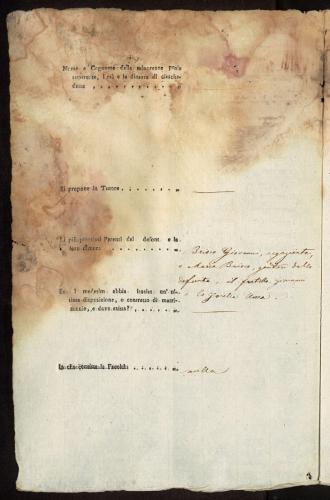 Nome e Cognome della minorenne prole
superstite, l'età e la dimora di ciasche-
duna
Si propone la Tutore
Li più prossimi Parenti del defont. e la
loro dimora
Briois Giovanni,
e Maria Briois, genitori della
defunta, il fratello Giovanni
e la sorella Anna.
Se il medesimo abbia fatto un' ul-
tima disposizione, o contratto di matri-
monio, e dove esista?
In che consista la Facoltà
nulla